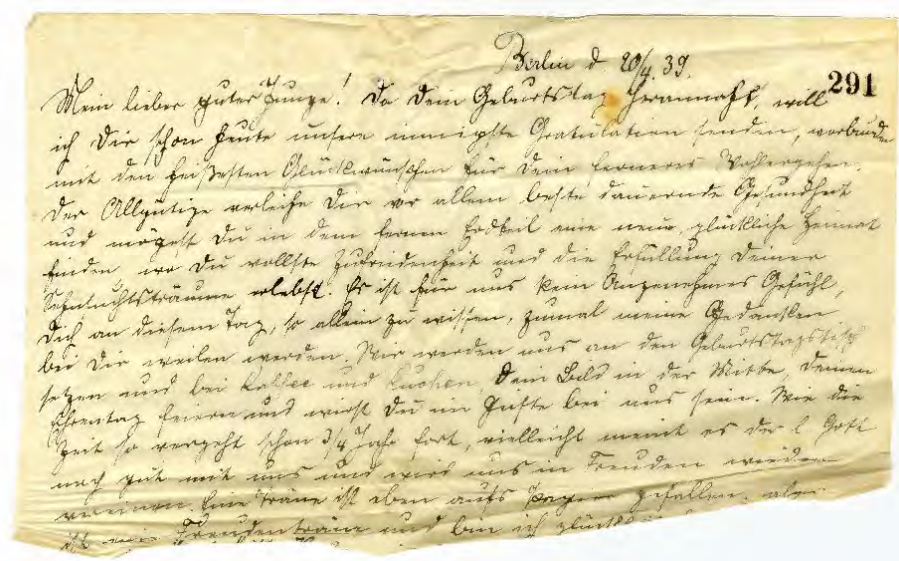 Berlin d. 20/4. 39.
291
Mein lieber guter Junge! Da Dein Geburtstag herannaht, will
ich Dir schon heute unsere innigste Gratulation senden, verbunden
mit den heißesten Glückwünschen für Dein ferneres Wohlergehen.
Der Allgütige verleihe Dir vor allem beste dauernde Gesundheit
und mögest Du in dem fernen Erdteil eine neue, glückliche Heimat
finden, wo Du vollste Zufriedenheit und die Erfüllung Deiner
Sehnsuchtsträume erlebst. Es ist für uns kein Angenehmes Gefühl,
Dich an diesem Tag, so allein zu wissen, zumal meine Gedanken
bei Dir weilen werden. Wir werden uns an den Geburtstagstisch
setzen und bei Kaffee und Kuchen, Dein Bild in der Mitte, Deinen
Ehrentag feiern und wirst Du im Geiste bei uns sein. Wie die
Zeit so vergeht schon 3/4 Jahr fort, vielleicht meint es der l. Gott
noch gut mit uns und wird uns in Freuden wieder
vereinen. Eine Träne ist eben aufs Papier gefallen, aber
Freudenträne und bin ich